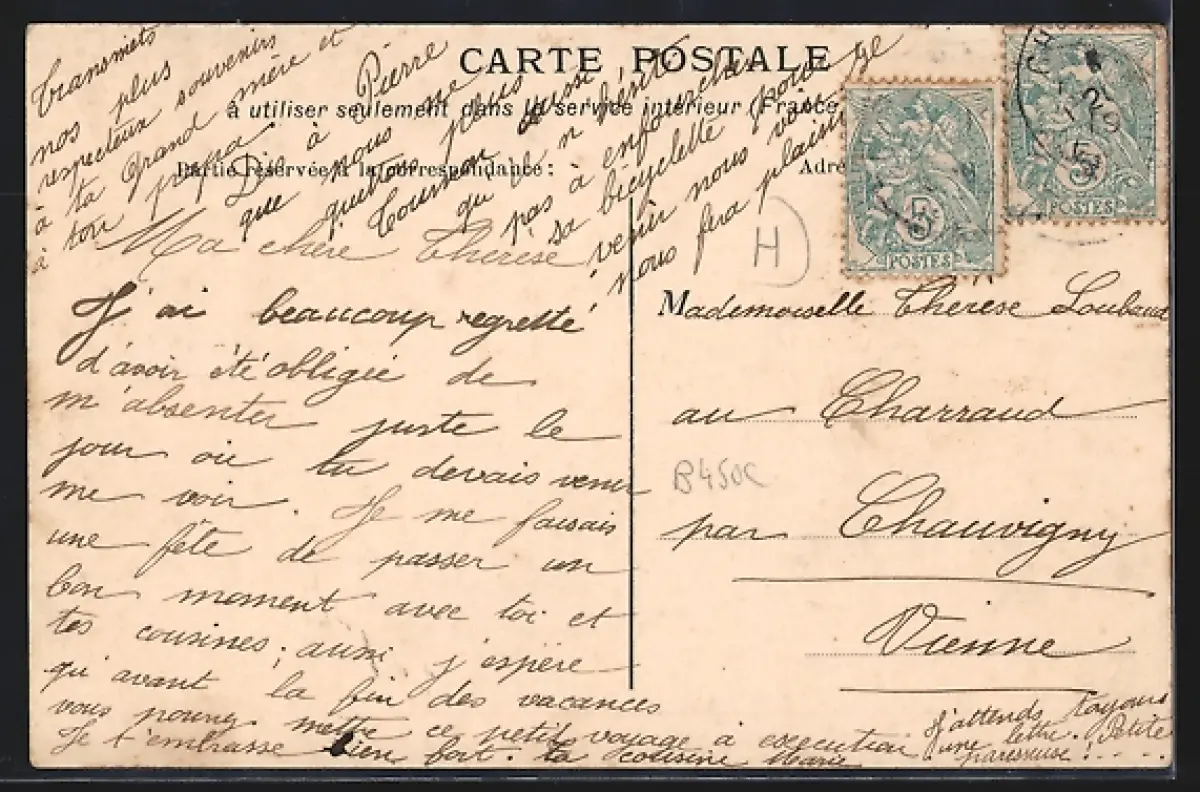 CARTE POSTALE
à utiliser seulement dans le service intérieur (France
Partie réservée à la correspondance :
Adre
Transmets
nos plus
respectueux souvenirs
à ta Grand mère et
à ton papa
Dis à Pierre
que nous ne
quittons plus
Cournon aussi
qu'il n'hésite
pas à enfourcher
sa bicyclette pour
venir nous voir
nous fera plaisir
Ma chère Thérèse
J'ai beaucoup regretté
d'avoir été obligée de
m'absenter juste le
jour où tu devais venir
me voir. Je me faisais
une fête de passer un
bon moment avec toi et
tes cousines, aussi j'espère
qu'avant la fin des vacances
vous pourrez mettre ce petit voyage à execution
Je t'embrasse bien fort. ta cousine Marie
5
POSTES
5
POSTES
H
Mademoiselle Therese
au Charraud
B450C
par Chauvigny
Vienne
J'attends
une lettre. Petite
paresseuse !